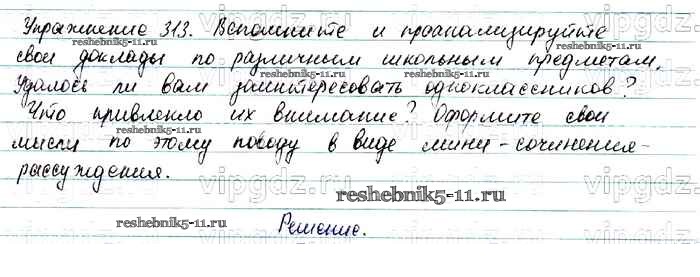 Упражнение 313. Вспомните и проанализируйте
свои доклады по различным школьным предметам.
Удалось ли вам заинтересовать одноклассников?
Что привлекло их внимание? Оформите свои
мысли по этому поводу в виде мини-сочинения-
рассуждения.
Решение.
vipgdz.ru
reshebnik5-11.ru
reshebnik5-11.ru
reshebnik5-11.ru
reshebnik5-11.ru
reshebnik5-11.ru